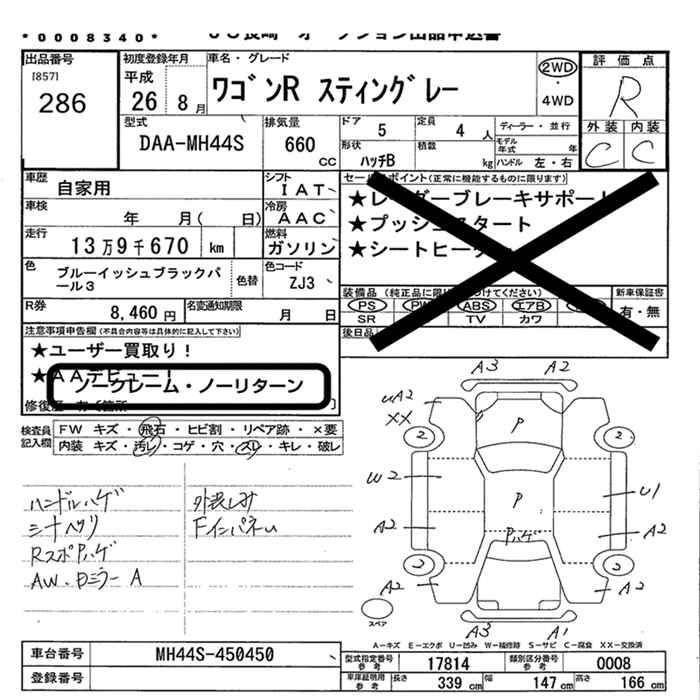 *0008340*
出品番号 初度登録年月 車名・グレード 評価点
[857] 平成 ワゴンR スティングレー 2WD R
286 26 年 8 月 ・4WD 外装 内装
型式 排気量 ドア 5 定員 4 人 ディーラー・並行 C C
DAA-MH44S 660 cc 形状 ハッチB 積載 kg モデル年式 年 ハンドル 左・右
車歴 自家用 シフト IAT セールスポイント(正常に機能するものに限ります)
車検 年 月( 日) 冷房 AAC ★レーダーブレーキサポート
★プッシュスタート
走行 13万9千670 km 燃料 ガソリン ★シートヒーター
色 ブルーイッシュブラックパール3 色替 色コード ZJ3
装備品 (純正品に限り つけてください) 新車保証書
PS PW ABS エアB 有・無
SR TV カワ
R券 8,460円 名変通知期限 月 日 後日品
注意事項申告欄(不具合内容等は具体的に記入して下さい)
★ユーザー買取り!
★AAデビュー!
ノークレーム・ノーリターン
修復歴 有 (箇所 )
検査員記入欄 FW キズ・飛石・ヒビ割・リペア跡・×要
内装 キズ・汚レ・コゲ・穴・スレ・キレ・破レ
ハンドルハゲ 外装しみ
シートヘタリ Fインパネム
RスポPハゲ
AW.Dミラー A
A3 A2
uA2
XX
2 P 2
W2 P U1
A2 Pハゲ A2
2 2
A2 A2
スペア
A3 A1
A-キズ E-エクボ U-凹み W-補修跡 S-サビ C-腐食 XX-交換済
車台番号 MH44S-450450 型式指定番号 参考 17814 類別区分番号 参考 0008
登録番号 車庫証明用 参考 長さ 339 cm 幅 147 cm 高さ 166 cm